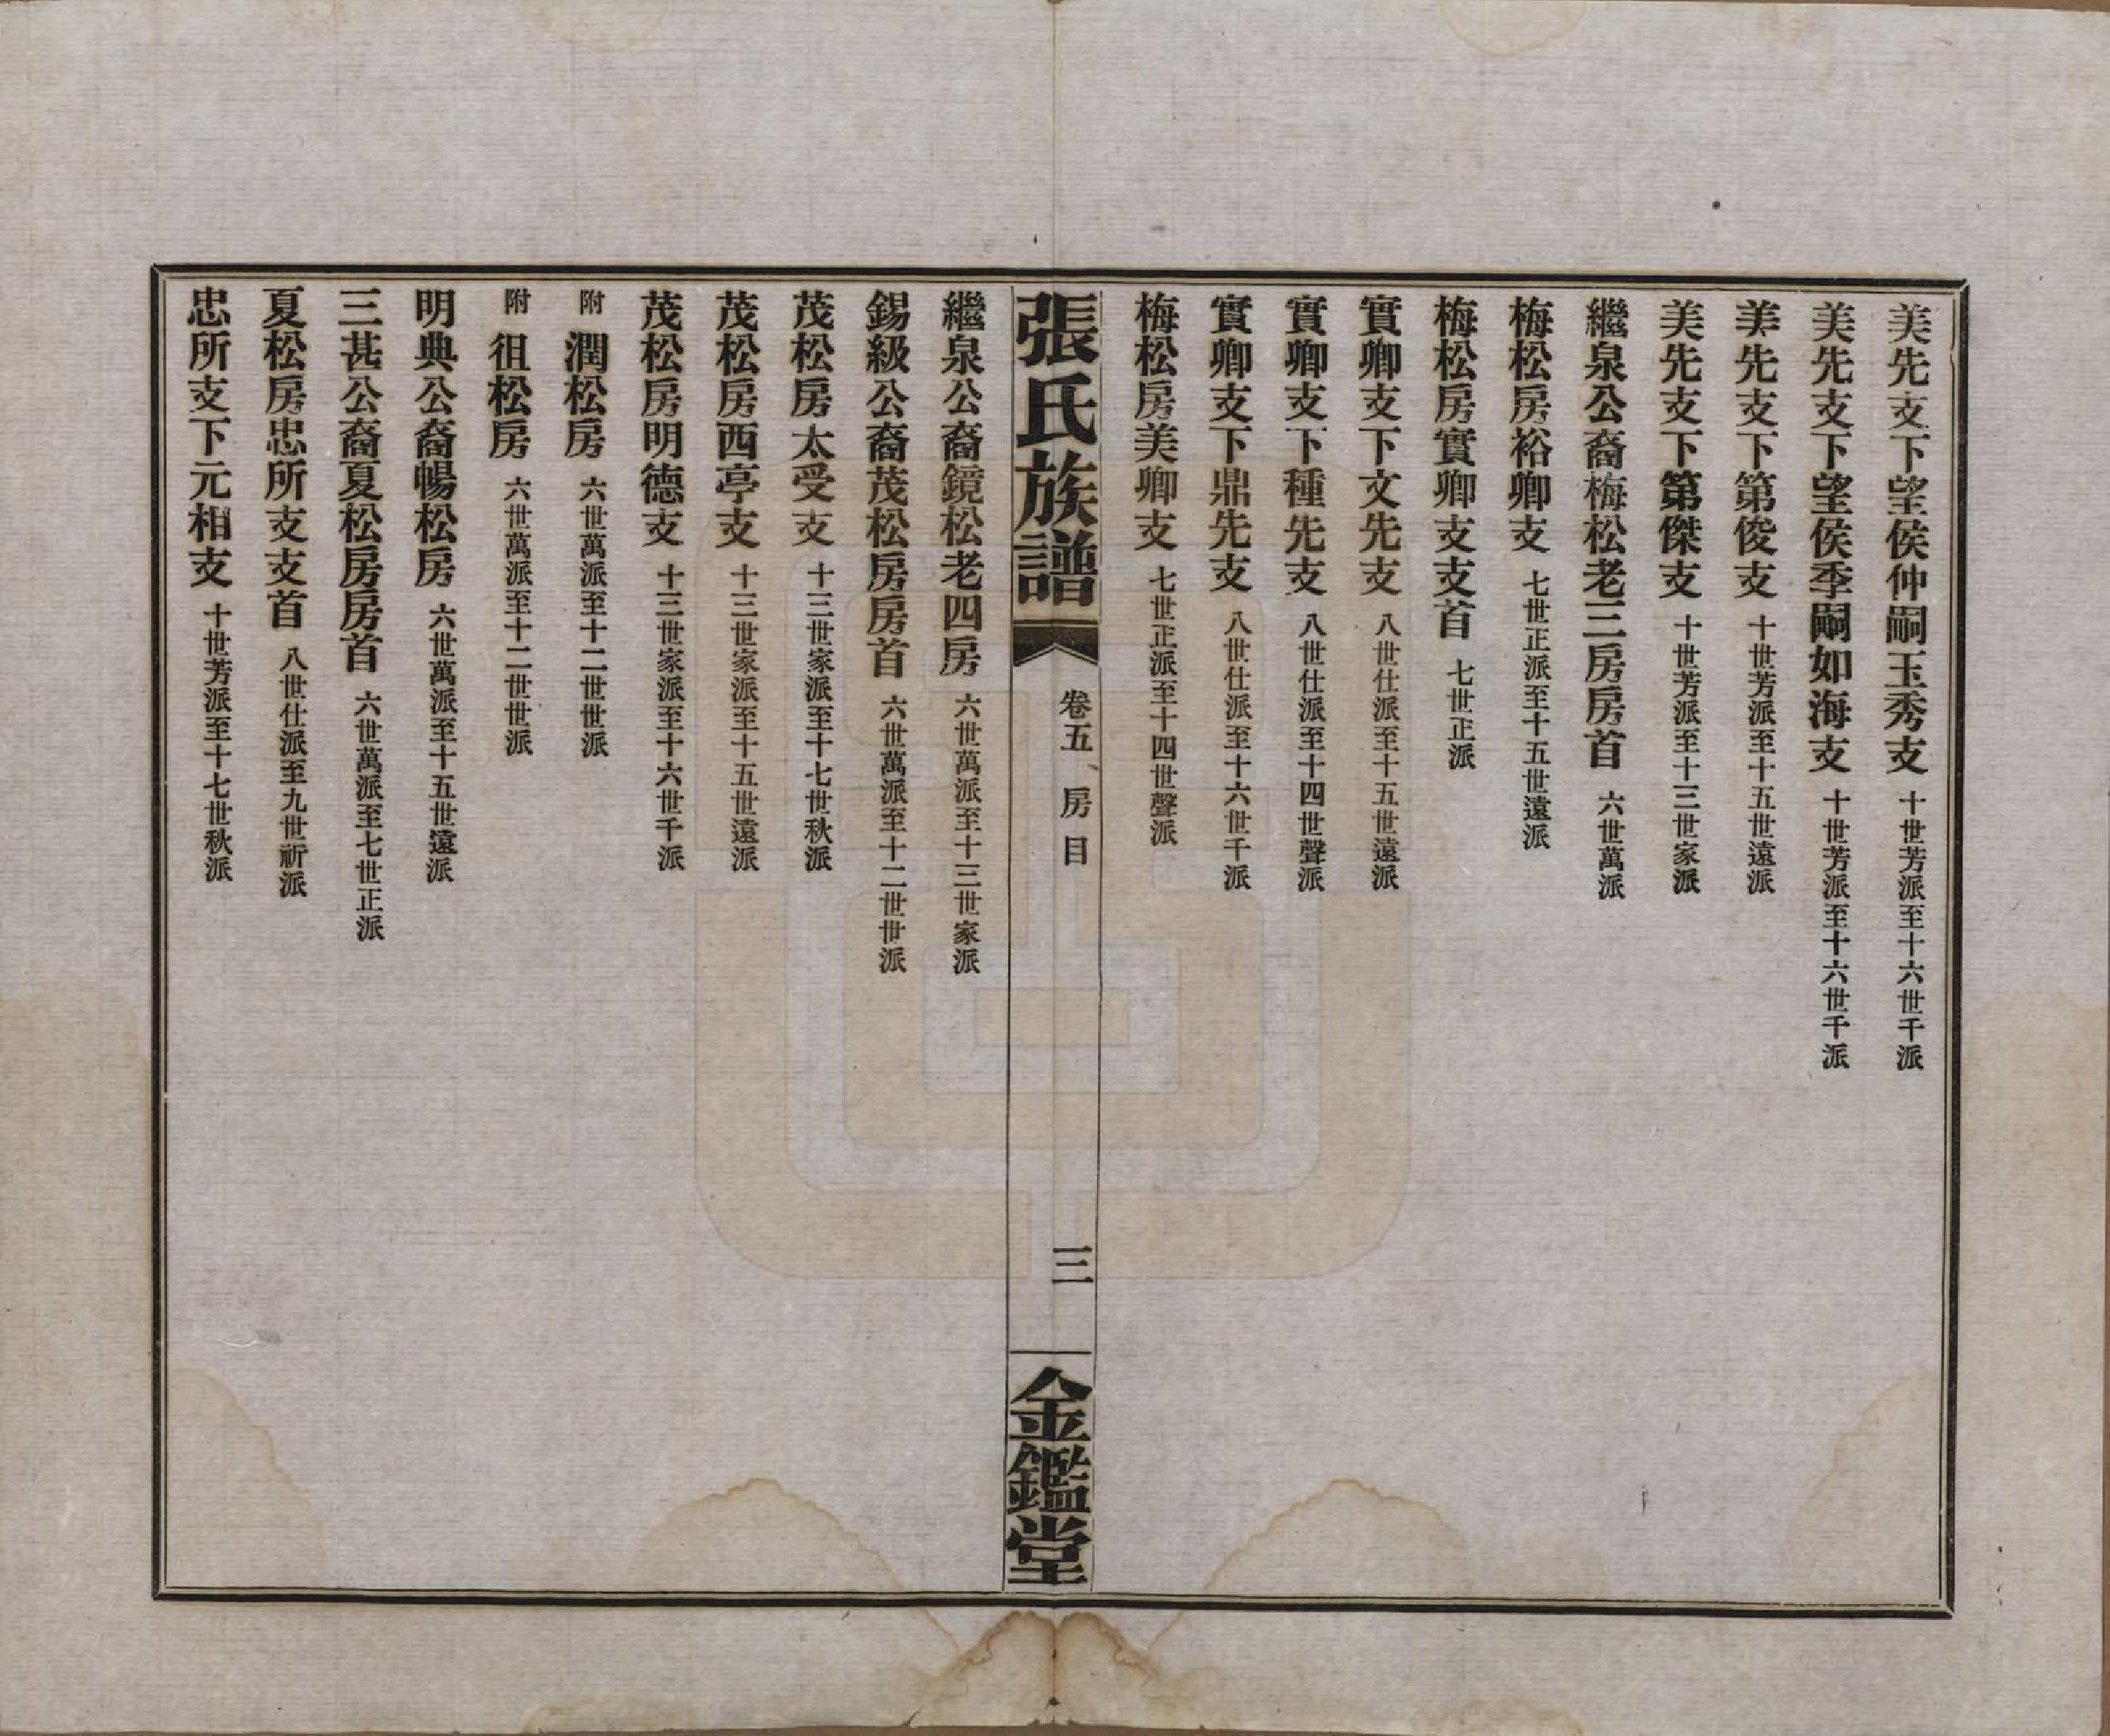 美先支下望侯仲嗣玉秀支 十世芳派至十六世千派
美先支下望侯季嗣如海支 十世芳派至十六世千派
美先支下第俊支 十世芳派至十五世遠派
美先支下第傑支 十世芳派至十三世家派
繼泉公裔梅松老三房房首 六世萬派
梅松房裕卿支 七世正派至十五世遠派
梅松房實卿支支首 七世正派
實卿支下文先支 八世仕派至十五世遠派
實卿支下種先支 八世仕派至十四世聲派
實卿支下鼎先支 八世仕派至十六世千派
梅松房美卿支 七世正派至十四世聲派
張氏族譜 卷五、房目 三 金鑑堂
繼泉公裔鏡松老四房 六世萬派至十三世家派
錫級公裔茂松房房首 六世萬派至十二世世派
茂松房太受支 十三世家派至十七世秋派
茂松房西亭支 十三世家派至十五世遠派
茂松房明德支 十三世家派至十六世千派
附 潤松房 六世萬派至十二世世派
附 徂松房 六世萬派至十二世世派
明典公裔暢松房 六世萬派至十五世遠派
三甚公裔夏松房房首 六世萬派至七世正派
夏松房忠所支支首 八世仕派至九世祈派
忠所支下元相支 十世芳派至十七世秋派